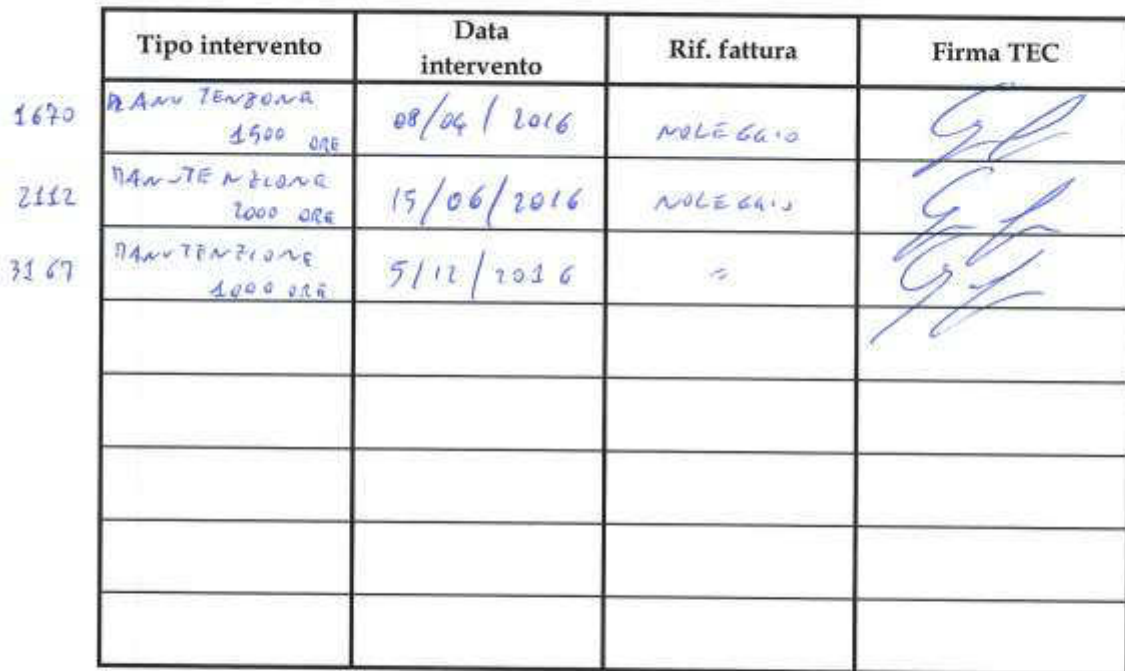 Tipo intervento Data intervento Rif. fattura Firma TEC
1670 MANUTENZONE 1500 ORE 08/04/2016 NOLEGGIO
2112 MANUTENZIONE 2000 ORE 15/06/2016 NOLEGGIO
3167 MANUTENZIONE 1000 ORE 5/12/2016 =